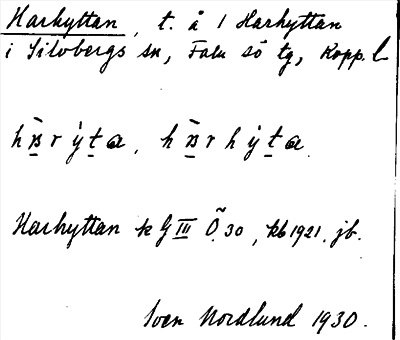 Harhyttan, t. å 1 Harhyttan
i Silvbergs sn, Falu sö tg, Kopp. l
Harhyttan k G III Ö. 30, kb 1921. jb.
Sven Nordlund 1930.